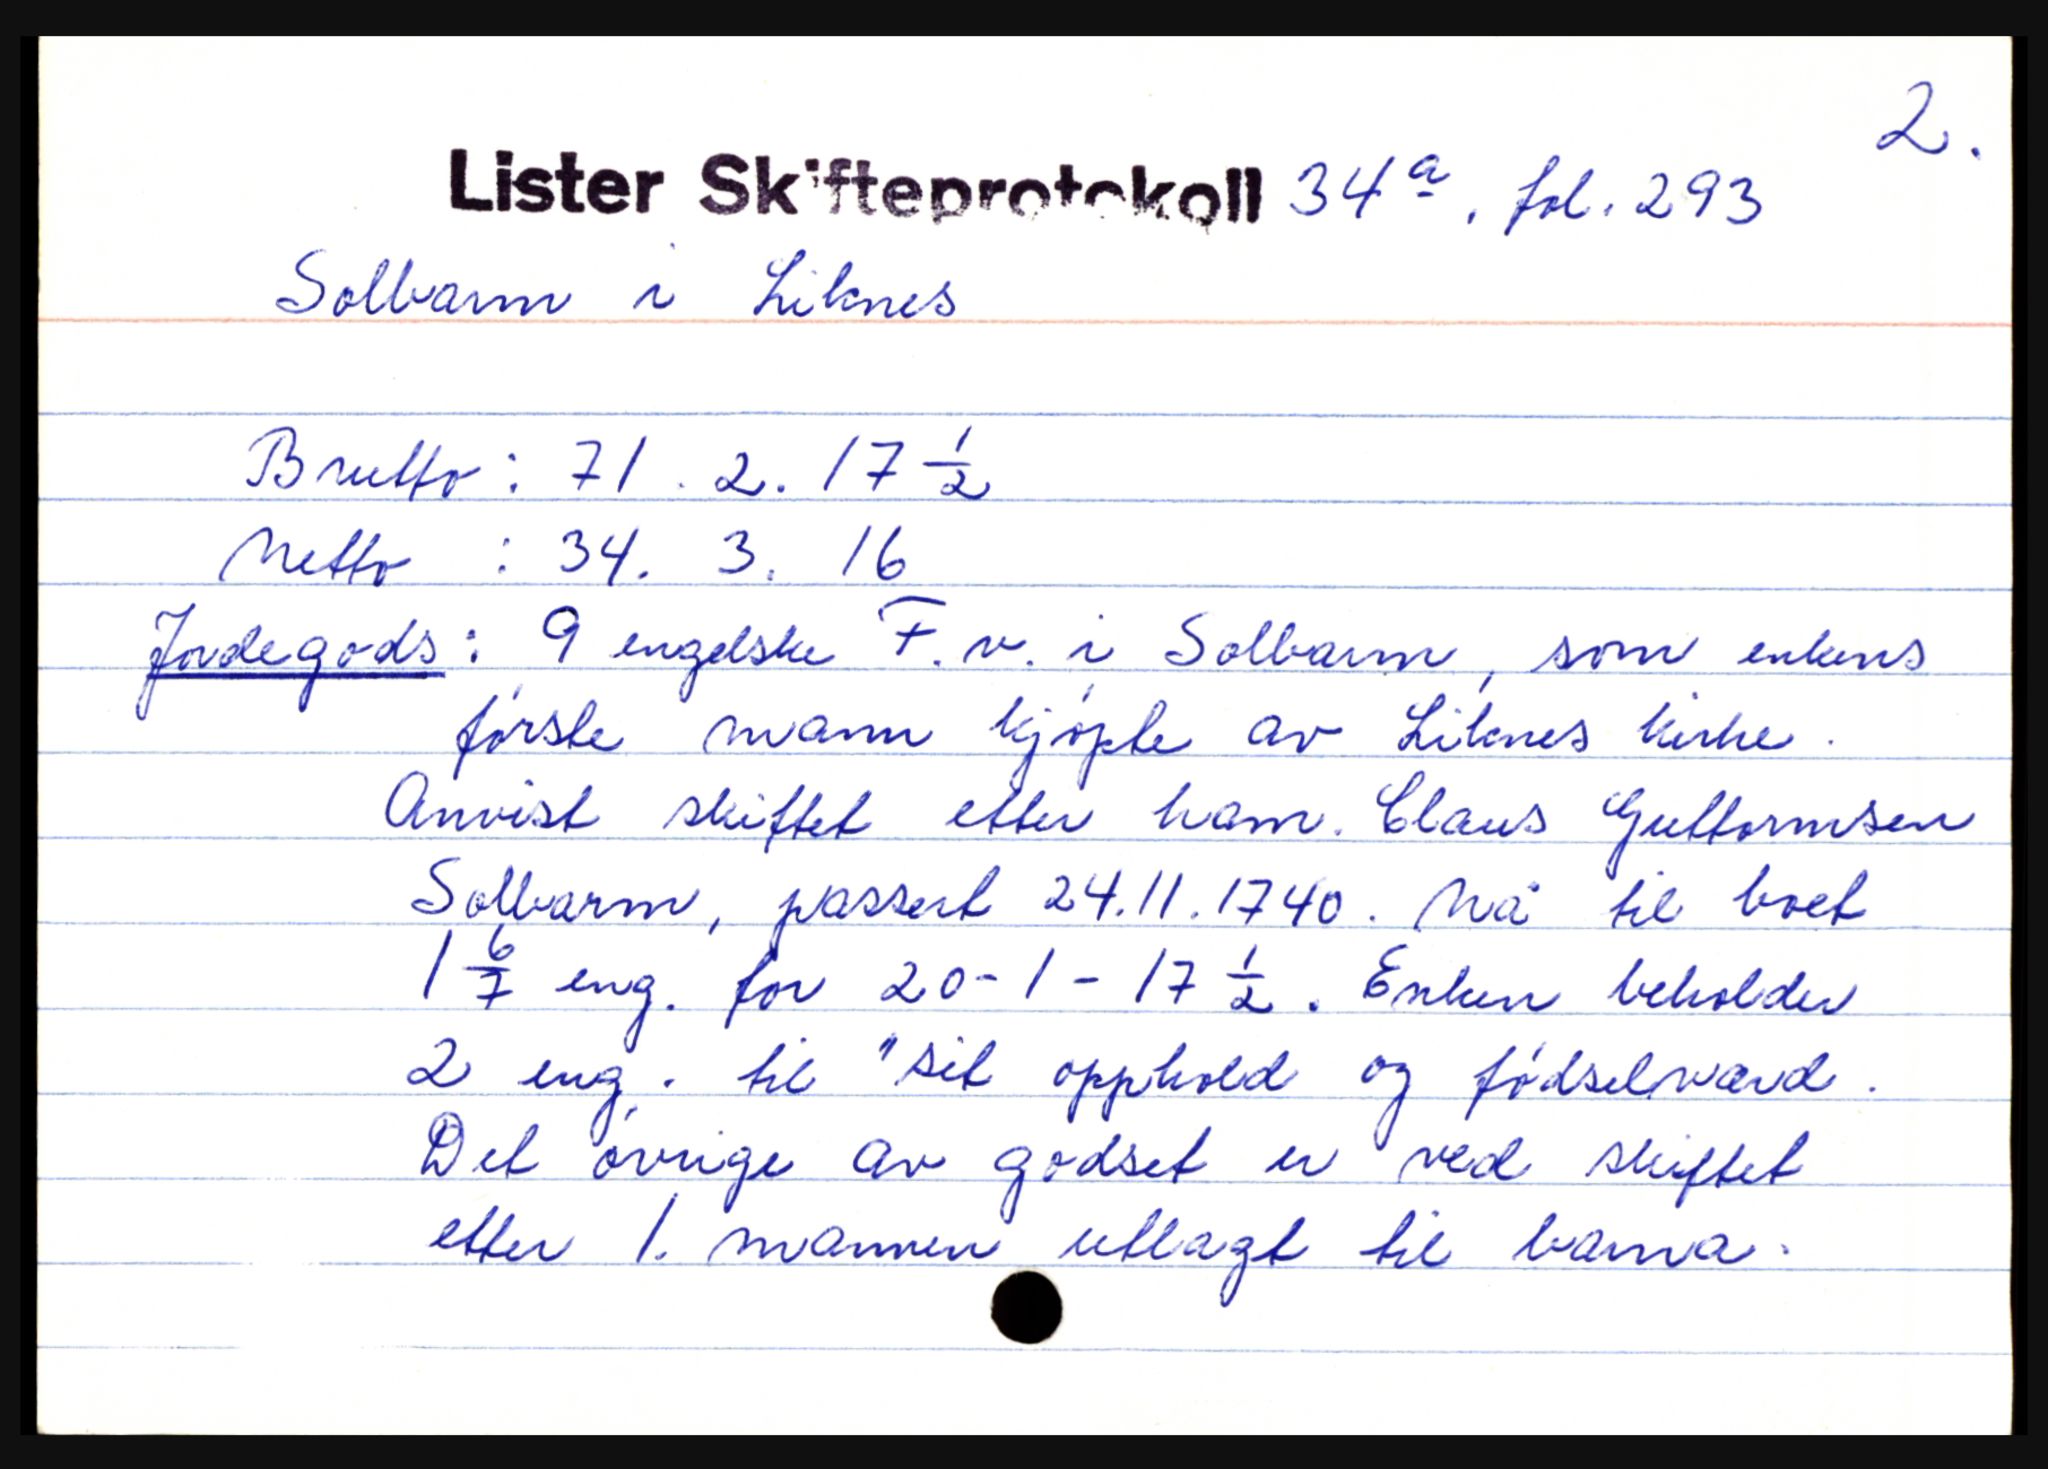 2.
Lister Skifteprotokoll 34a, fol. 293
Solbarm i Liknes
Brutto: 71. 2. 17 1/2
Netto : 34. 3. 16
Jordegods: 9 engelske F. v. i Solbarm, som enkens
første mann kjøpte av Liknes kirke.
Anvist skiftet etter ham. Claus Guttormsen
Solbarm, passert 24.11.1740. Nå til boet
1 6/7 eng. for 20-1-17 1/2. Enken beholder
2 eng. til "sit opphold og fødselværd.
Det øvrige av godset er ved skiftet
etter 1. mannen utlagt til barna.